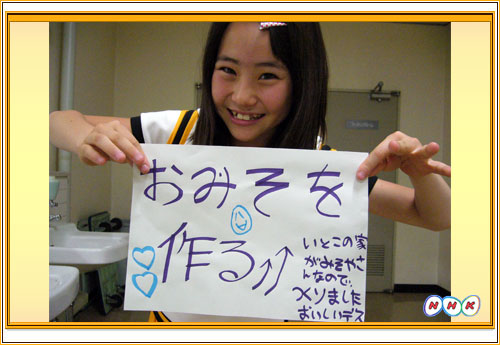 おみそを
作る↑↑
いとこの家
がみそやさ
んなので、
メリました
おいしいデス
NHK